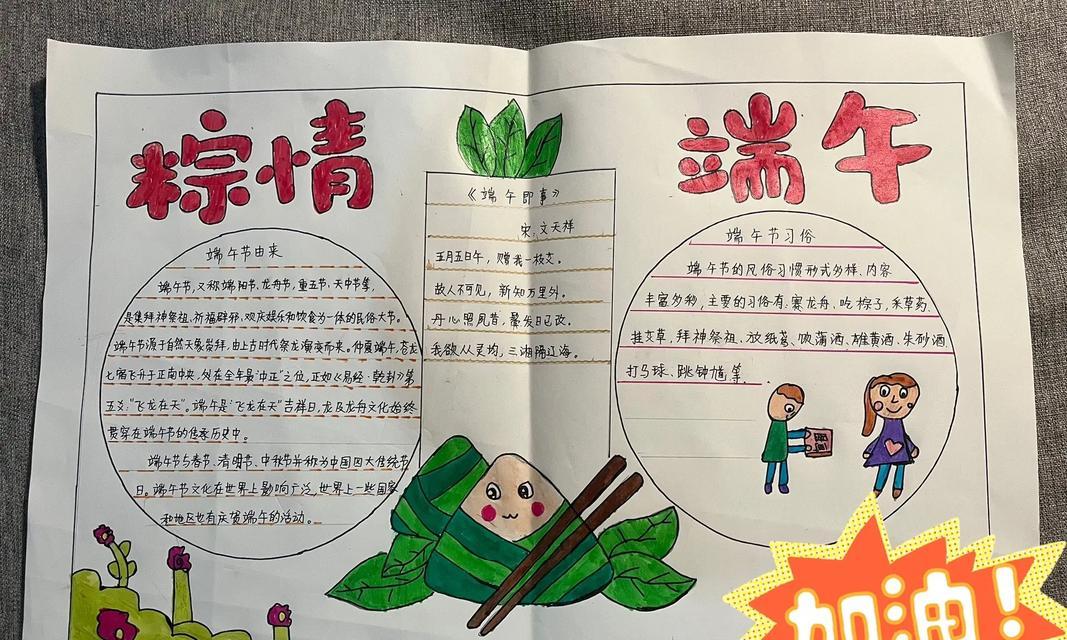 粽情
端午
端午节由来
端午节,又称端阳节、龙舟节、重五节、天中节等,
是集拜神祭祖、祈福辟邪、欢庆娱乐和饮食为一体的民俗大节。
端午节源于自然天象崇拜,由上古时代祭龙演变而来。仲夏端午,苍龙
七宿飞升于正南中央,处在全年最“中正”之位,正如《易经·乾卦》第
五爻:“飞龙在天”。端午是“飞龙在天”吉祥日,龙及龙舟文化始终
贯穿在端午节的传承历史中。
端午节与春节、清明节、中秋节并称为中国四大传统节
日。端午节文化在世界上影响广泛,世界上一些国家
和地区也有庆贺端午的活动。
《端午即事》
宋:文天祥
五月五日午,赠我一枝艾。
故人不可见,新知万里外。
丹心照夙昔,鬓发日已改。
我欲从灵均,三湘隔辽海。
端午节习俗
端午节的风俗习惯形式多样、内容
丰富多彩,主要的习俗有:赛龙舟、吃粽子、采草药、
挂艾草,拜神祭祖、放纸鸢、饮蒲酒、雄黄酒、朱砂酒
打马球、跳钟馗等。
加油!